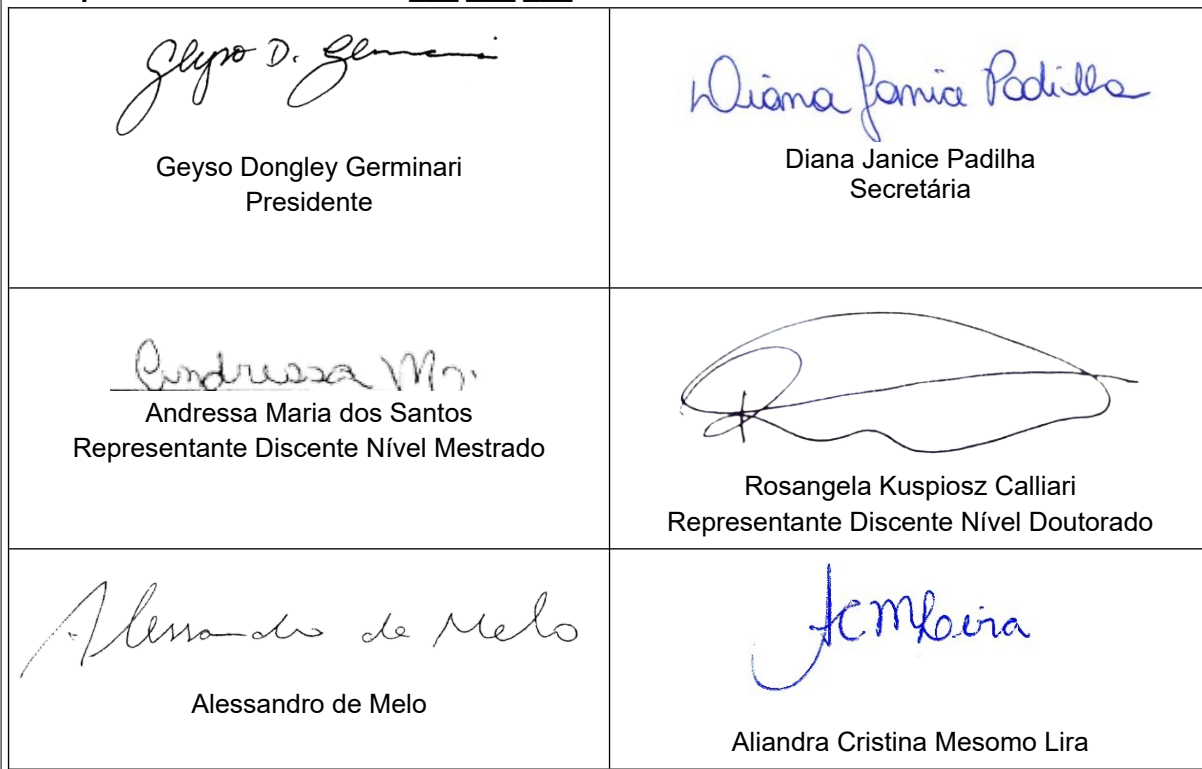 Geyso D. Germinari
Geyso Dongley Germinari
Presidente
Diana Janice Padilha
Diana Janice Padilha
Secretária
Andressa M.
Andressa Maria dos Santos
Representante Discente Nível Mestrado
Rosangela Kuspiosz Calliari
Representante Discente Nível Doutorado
Alessandro de Melo
Alessandro de Melo
ACMLira
Aliandra Cristina Mesomo Lira